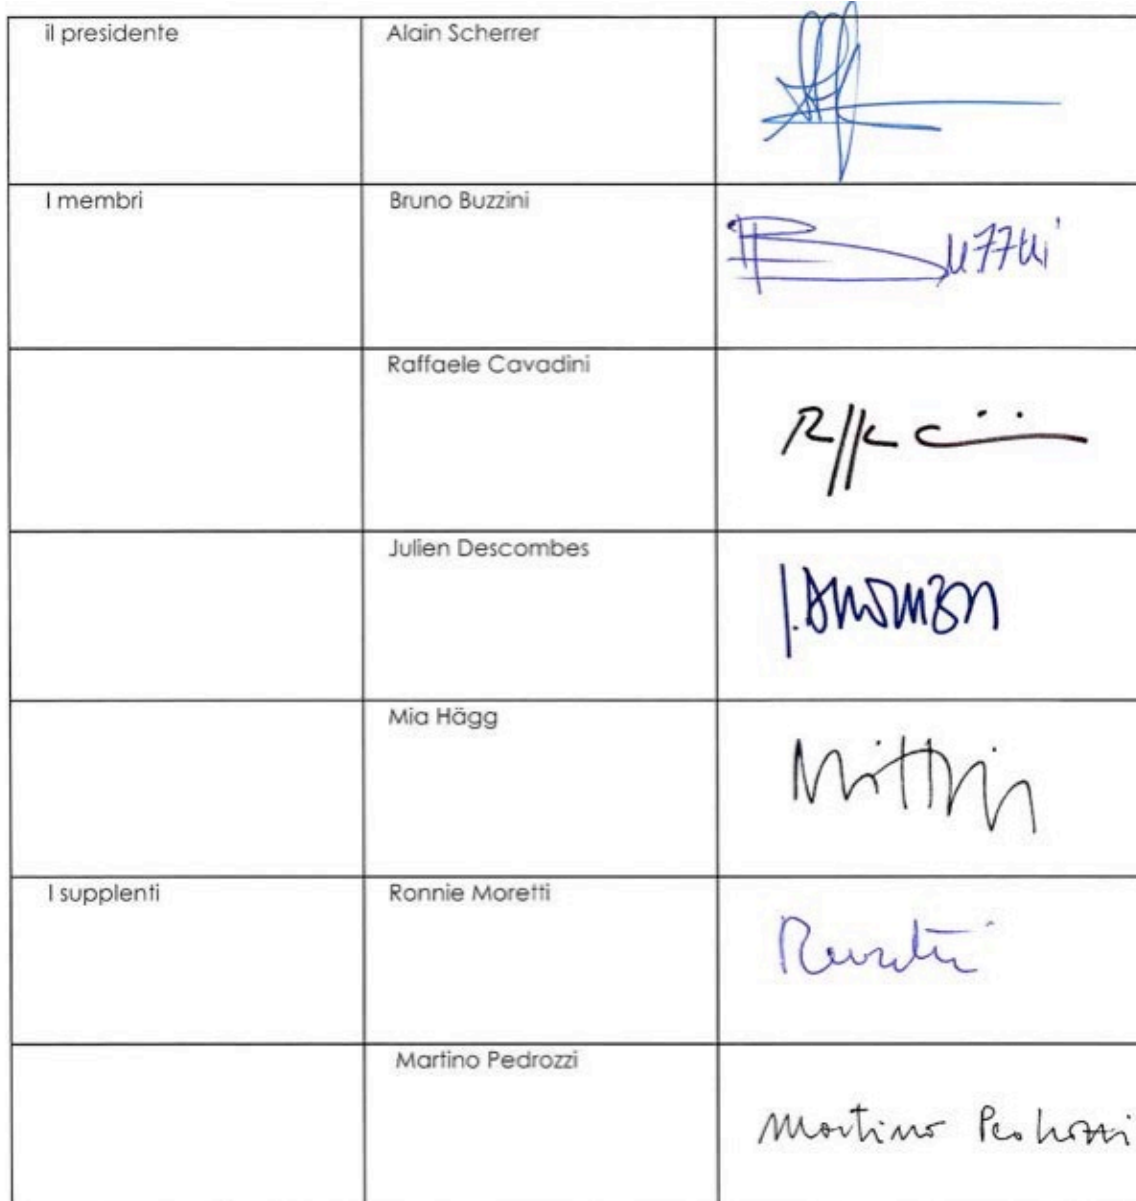 il presidente Alain Scherrer
I membri Bruno Buzzini
Raffaele Cavadini
Julien Descombes
Mia Hägg
I supplenti Ronnie Moretti
Martino Pedrozzi
Martino Pedrozzi